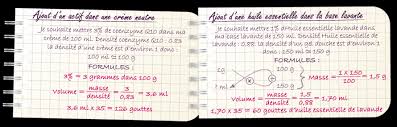 Ajout d'un actif dans une crème neutre
Je souhaite mettre 3% de coenzyme Q10 dans ma
crème de 100 ml. Densité coenzyme Q10 : 0.83
la densité d'une crème est d'environ 1 donc :
100 ml ≈ 100 g
FORMULES :
3% = 3 grammes dans 100 g
Volume = masse / densité = 3 / 0,83 = 3.6 ml
3.6 ml x 35 = 126 gouttes
Ajout d'une huile essentielle dans la base lavante
Je souhaite mettre 1% d'huile essentielle lavande dans
ma base lavante de 150 ml. Densité Huile essentielle de
Lavande : 0.88. la densité d'un gel douche est d'environ 1
donc : 150 ml ≈ 150 g
FORMULES :
1 g 100 g
? ml 150 g
Masse = 1 x 150 / 100 = 1,5 g
Volume = masse / densité = 1,5 / 0,88 = 1,70 ml
1,70 x 35 = 60 gouttes d'huile essentielle de lavande